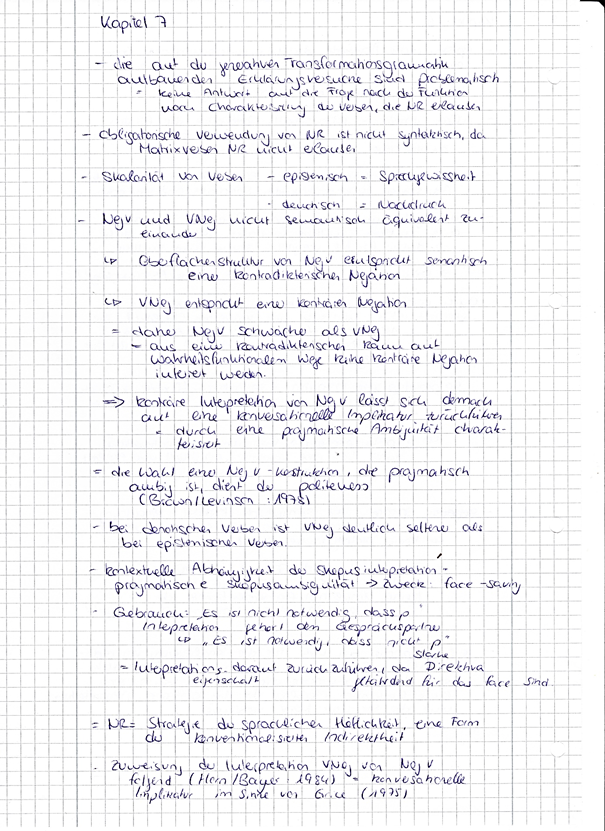 Kapitel 7
- die auf der generativen Transformationsgrammatik
aufbauenden Erklärungsversuche sind problematisch
= keine Antwort auf die Frage nach der Funktion
noch Charakterisierung der Verben, die NR erlauben
- obligatorische Verwendung von NR ist nicht syntaktisch, da
Matrixverben NR nicht erlauben
- Skalarität von Verben - epistemisch = Sprechgewissheit
- deontisch = Nachdruck
- NegV und VNeg nicht semantisch äquivalent zu-
einander
↳ Oberflächenstruktur von NegV entspricht semantisch
einer kontradiktorischen Negation
↳ VNeg entspricht einer konträren Negation
= daher NegV schwächer als VNeg
- aus einer kontradiktorischen kann auf
wahrheitsfunktionalem Wege keine konträre Negation
inferiert werden.
=> konträre Interpretation von NegV lässt sich demnach
auf eine konversationelle Implikatur zurückführen
= durch eine pragmatische Ambiguität charak-
terisiert
= die Wahl einer NegV-Konstruktion, die pragmatisch
ambig ist, dient der politeness
(Brown/Levinson: 1978)
- bei deontischen Verben ist VNeg deutlich seltener als
bei epistemischen Verben.
- kontextuelle Abhängigkeit der Skopusinterpretation -
pragmatische Skopusambiguität → Zweck: face-saving
- Gebrauch: „Es ist nicht notwendig, dass p"
Interpretation gehört dem Gesprächspartner
↳ „Es ist notwendig, dass nicht p"
starke
= Interpretations- darauf zurückzuführen, da Direktiva
eigenschaft gefährdend für das face sind.
= NR = Strategie der sprachlichen Höflichkeit, eine Form
der konventionalisierten Indirektheit
- Zuweisung der Interpretation VNeg von NegV
folgend (Horn/Bayer: 1984) = konversationelle
Implikatur im Sinne von Grice (1975)